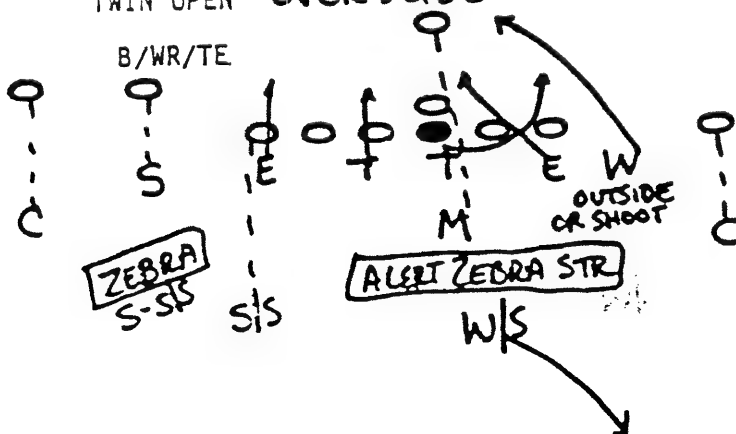 TWIN OPEN
B/WR/TE
E T T E W
S
OUTSIDE
OR SHOOT
C M C
ZEBRA
S-S/S
ALERT ZEBRA STR
S/S W/S